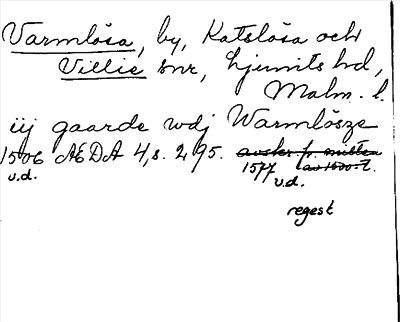 Varmlösa, by, Katslösa och
Villie snr, Ljunits hd,
Malm. l.
iij gaarde wdj Warmlösze
1506 AEDA 4, s. 295. avskr fr mitten
u.d. 1577 av 1500-t.
u.d.
regest